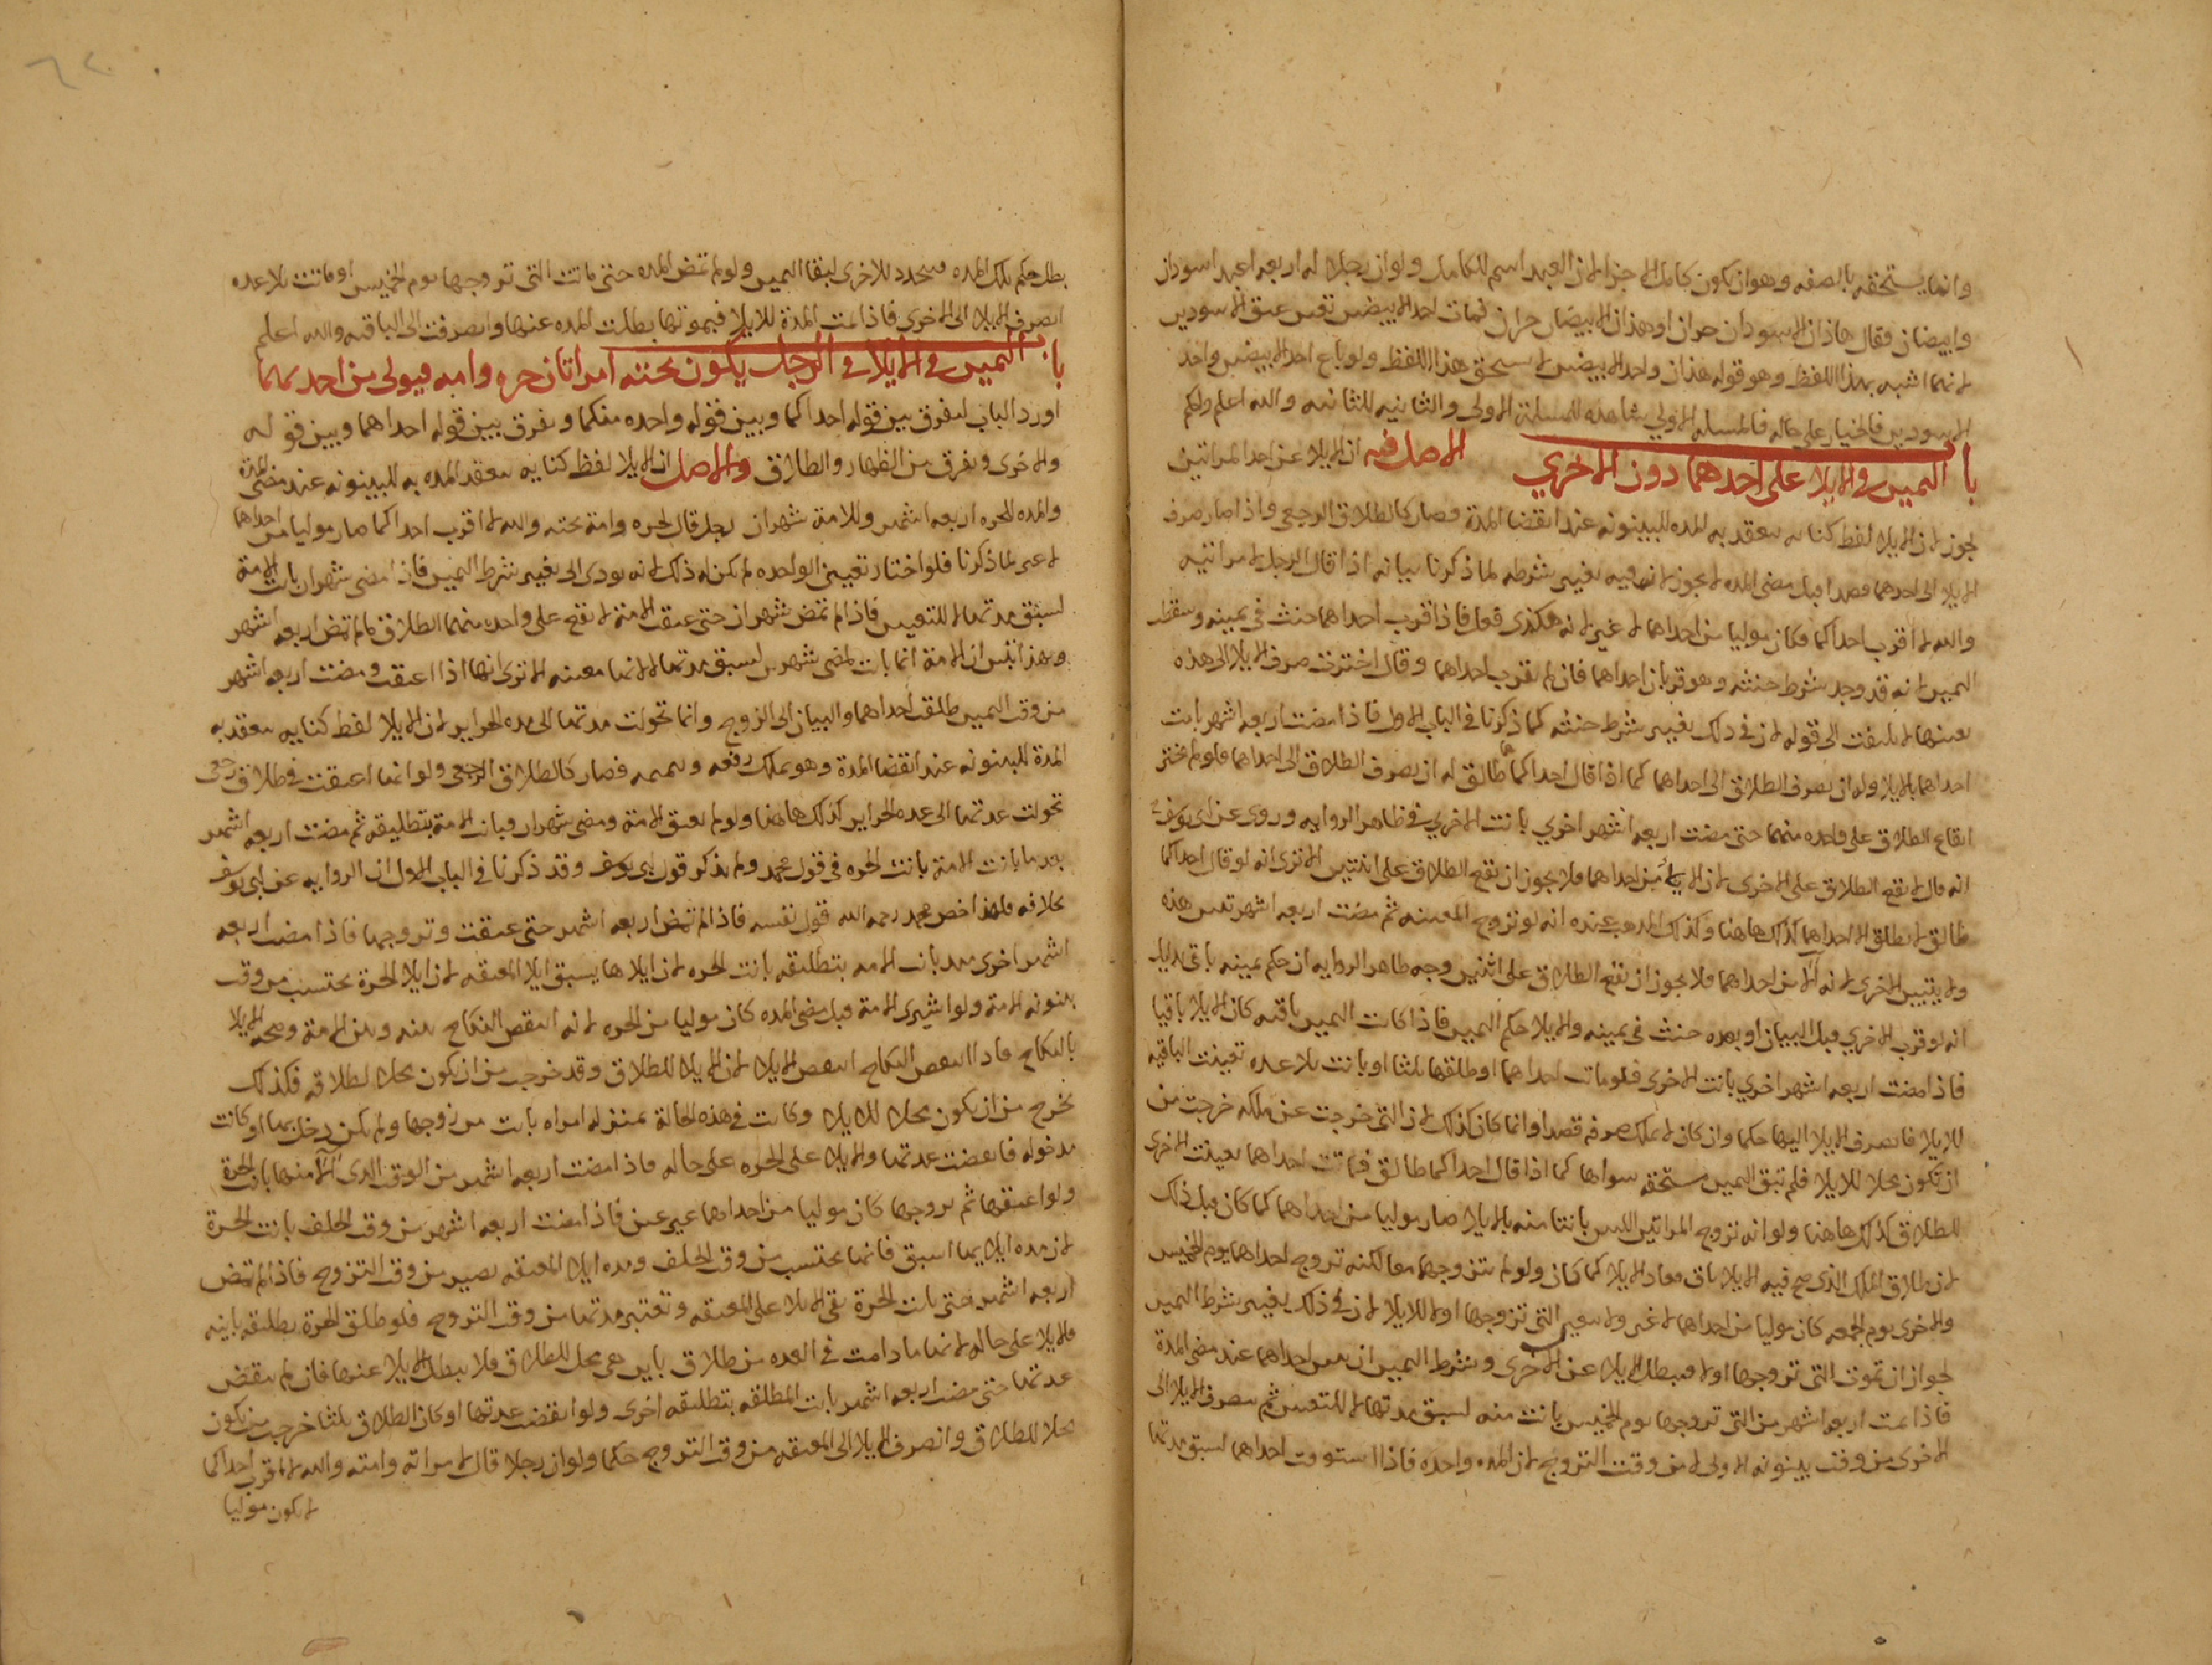 وانما يستحقه بالصفه وهو ان يكون كامل الاجزا لان العبد اسم للكامل ولو ان رجلا له اربعه اعبد اسودان
وابيضان فقال هاذان الاسودان حران او هذان الابيضان حران فمات احد الابيضين تعين عتق الاسودين
لانهما اشبه بهذا اللفظ وهو قوله هذان واحد الابيضين لا يستحق هذا اللفظ ولو باع احد الابيضين واحد
الاسودين فالخيار على حاله فالمسله الاولى شاهده للمسلة الاولى والثانيه للثانيه والله اعلم
باب اليمين في الايلا على احدهما دون الاخري الاصل فيه ان الايلا عن احد المراتين
يجوز لان الايلا لفظ كنايه ينعقد به المده للبينونه عند انقضا المدة فصار كالطلاق الرجعي واذا صار صرف
الايلا الى احدهما قصدا قبل مضى المده لا يجوز لانه فيه تغيير شرطه لما ذكرنا بيانه اذا قال الرجل لامراتيه
والله لا اقرب احداكما فكان موليا من احداهما لا غير لانه هكذى قول فاذا قرب احداهما حنث في يمينه وسقط
اليمين لانه قد وجد شرط حنثه وهو قربان احداهما فان لم يقرب احداهما وقال اخترت صرف الايلا الى هذه
بعينها لا يلتفت الى قوله لان في ذلك تغيير شرط حنثه كما ذكرنا في الباب الاول فاذا مضت اربعه اشهر بانت
احداهما بالايلا وله ان يصرف الطلاق الى احداهما كما اذا قال احداكما طالق له ان يصرف الطلاق الى احداهما فلو لم يختر
ايقاع الطلاق على واحده منهما حتى مضت اربعه اشهر اخري بانت الاخري في ظاهر الروايه وروى عن ابى يوسف
انه قال لا يقع الطلاق على الاخرى لان الايلا من احداهما فلا يجوز ان يقع الطلاق على اثنتين الا ترى انه لو قال احداكما
طالق لا يطلق الا احداهما كذلك هاهنا وكذلك المذهب عنده انه لو تزوج المعينه ثم مضت اربعه اشهر تعين هذه
ولا يتبين الاخرى لانه آلا من احداهما فلا يجوز ان يقع الطلاق على اثنين وجه ظاهر الروايه ان حكم يمينه باق بدليل
انه لو قرب الاخري قبل البيان او بعده حنث في يمينه والايلا حكم اليمين فاذا كانت اليمين باقيه كان الايلا باقيا
فاذا مضت اربعه اشهر اخري بانت الاخرى فلو ماتت احداهما او طلقها ثلثا او بانت بلا عده تعينت الباقيه
للايلا فانصرف الايلا اليها حكما وان كان لا يملك صرفه قصدا وانما كان كذلك لان التى خرجت عن ملكه خرجت من
ان تكون محلا للايلا فلم تبق اليمين مستحقه سواها كما اذا قال احداكما طالق فماتت احداهما تعينت الاخرى
للطلاق كذلك هاهنا ولو انه تزوج المراتين اللتين بانتا منه بالايلا صار موليا من احداهما كما كان قبل ذلك
لان طلاق الملك الذى صح فيه الايلا باق فعاد الايلا كما كان ولو لم يتزوجهما معا لكنه تزوج احداهما يوم الخميس
والاخرى يوم الجمعه كان موليا من احداهما لا غير ولا يتعين التى تزوجها اولا للايلا لان في ذلك تغيير شرط اليمين
لجواز ان تموت التى تزوجها اولا فيبطل الايلا عن الاخرى وشرط اليمين ان يعين احداهما عند مضى المدة
فاذا تمت اربعه اشهر من التى تزوجها يوم الخميس بانت منه لسبق مدتها لا للتعيين ثم ينصرف الايلا الى
الاخرى من وقت بينونه الاولى لا من وقت التزوج لان المده واحده فاذا استوفت احداهما لسبق مدتها
بطل حكم تلك المده فيتجدد للاخرى لبقا اليمين ولو لم تمض المده حتى ماتت التى تزوجها يوم الخميس او بانت بلا عده
انصرف الايلا الى الاخرى فاذا تمت المدة للايلا فبموتها بطلت المده عنها وانصرفت الى الباقيه والله اعلم
باب اليمين في الايلا في الرجل يكون تحته امراتان حره وامه فيولى من احديهما
اورد الباب لتفرق بين قوله احداكما وبين قوله واحده منكما وتفرق بين قوله احداهما وبين قوله
والاخرى وتفرق بين الظهار والطلاق والاصل ان الايلا لفظ كنايه ينعقد المده به للبينونه عند مضى المدة
والمده للحره اربعه اشهر وللامة شهران رجل قال لحره وامة تحته والله لا اقرب احداكما صار موليا من احداهما
لا غير لما ذكرنا فلو اختار تعيين الواحده لم يكن له ذلك لانه يودى الى تغيير شرط اليمين فاذا مضى شهران بانت الامة
لسبق مدتها لا للتعيين فاذا لم تمض شهران حتى عتقت الامة لا يقع على واحده منهما الطلاق ما لم تمض اربعه اشهر
وبهذا تبين ان الامة انما بانت لمضى شهرين لسبق مدتها لا لانها معينه الا ترى انها اذا اعتقت ومضت اربعه اشهر
من وقت اليمين طلقت احداهما والبيان الى الزوج وانما تحولت مدتها الى مده الحراير لان الايلا لفظ كنايه ينعقد به
المدة للبينونه عند انقضا المدة وهو يملك رفعه فصار كالطلاق الرجعى ولو انها اعتقت في طلاق رجعى
تحولت عدتها الى عده الحراير كذلك هاهنا ولو لم يعتق الامة ومضى شهران وبانت الامة بتطليقه ثم مضت اربعه اشهر
بعد ما بانت الامة بانت الحره في قول محمد ولم يذكر قول ابى يوسف وقد ذكرنا في الباب الاول ان الروايه عن ابى يوسف
بخلافه فلهذا خص محمد رحمه الله قول نفسه فاذا لم تمض اربعه اشهر حتى عتقت وتزوجها فاذا مضت اربعه
اشهر اخرى بعد بانت الامه بتطليقه بانت الحره لان ايلاها يسبق ايلا المعتقه لان ايلا الحرة يحتسب من وقت
بينونه الامة ولو اشترى الامة قبل مضى المده كان موليا من الحره لانه انتقض النكاح بينه وبين الامة وصحه الايلا
بالنكاح فاذا انتقض النكاح انتقض الايلا لان الايلا للطلاق وقد خرجت من ان يكون محلا لطلاقه فكذلك
تخرج من ان يكون محلا للايلا وكانت في هذه الحالة بمنزله امراه بانت من زوجها ولم يكن دخل بها او كانت
مدخوله فانقضت عدتها والايلا على الحره على حاله فاذا مضت اربعه اشهر من الوقت الذى آلا منها بانت الحرة
ولو اعتقها ثم تزوجها كان موليا من احداهما غير عين فاذا مضت اربعه اشهر من وقت الحلف بانت الحرة
لان مده ايلايها اسبق فانما يحتسب من وقت الحلف ومده ايلا المعتقه يصير من وقت التزوج فاذا لم تمض
اربعه اشهر حتى بانت الحرة بقى الايلا على المعتقه وتعتبر مدتها من وقت التزوج فلو طلق الحرة بطليقه باينه
فالايلا على حاله لانها ما دامت في العده من طلاق باين هى محل للطلاق فلا يبطل الايلا عنها فان لم ينقض
عدتها حتى مضت اربعه اشهر بانت المطلقه بتطليقه اخرى ولو انقضت عدتها او كان الطلاق ثلثا خرجت من ان يكون
محلا للطلاق وانصرف الايلا الى المعتقه من وقت التزوج حكما ولو ان رجلا قال لامراته وامته والله لا اقرب احداكما
لا يكون موليا